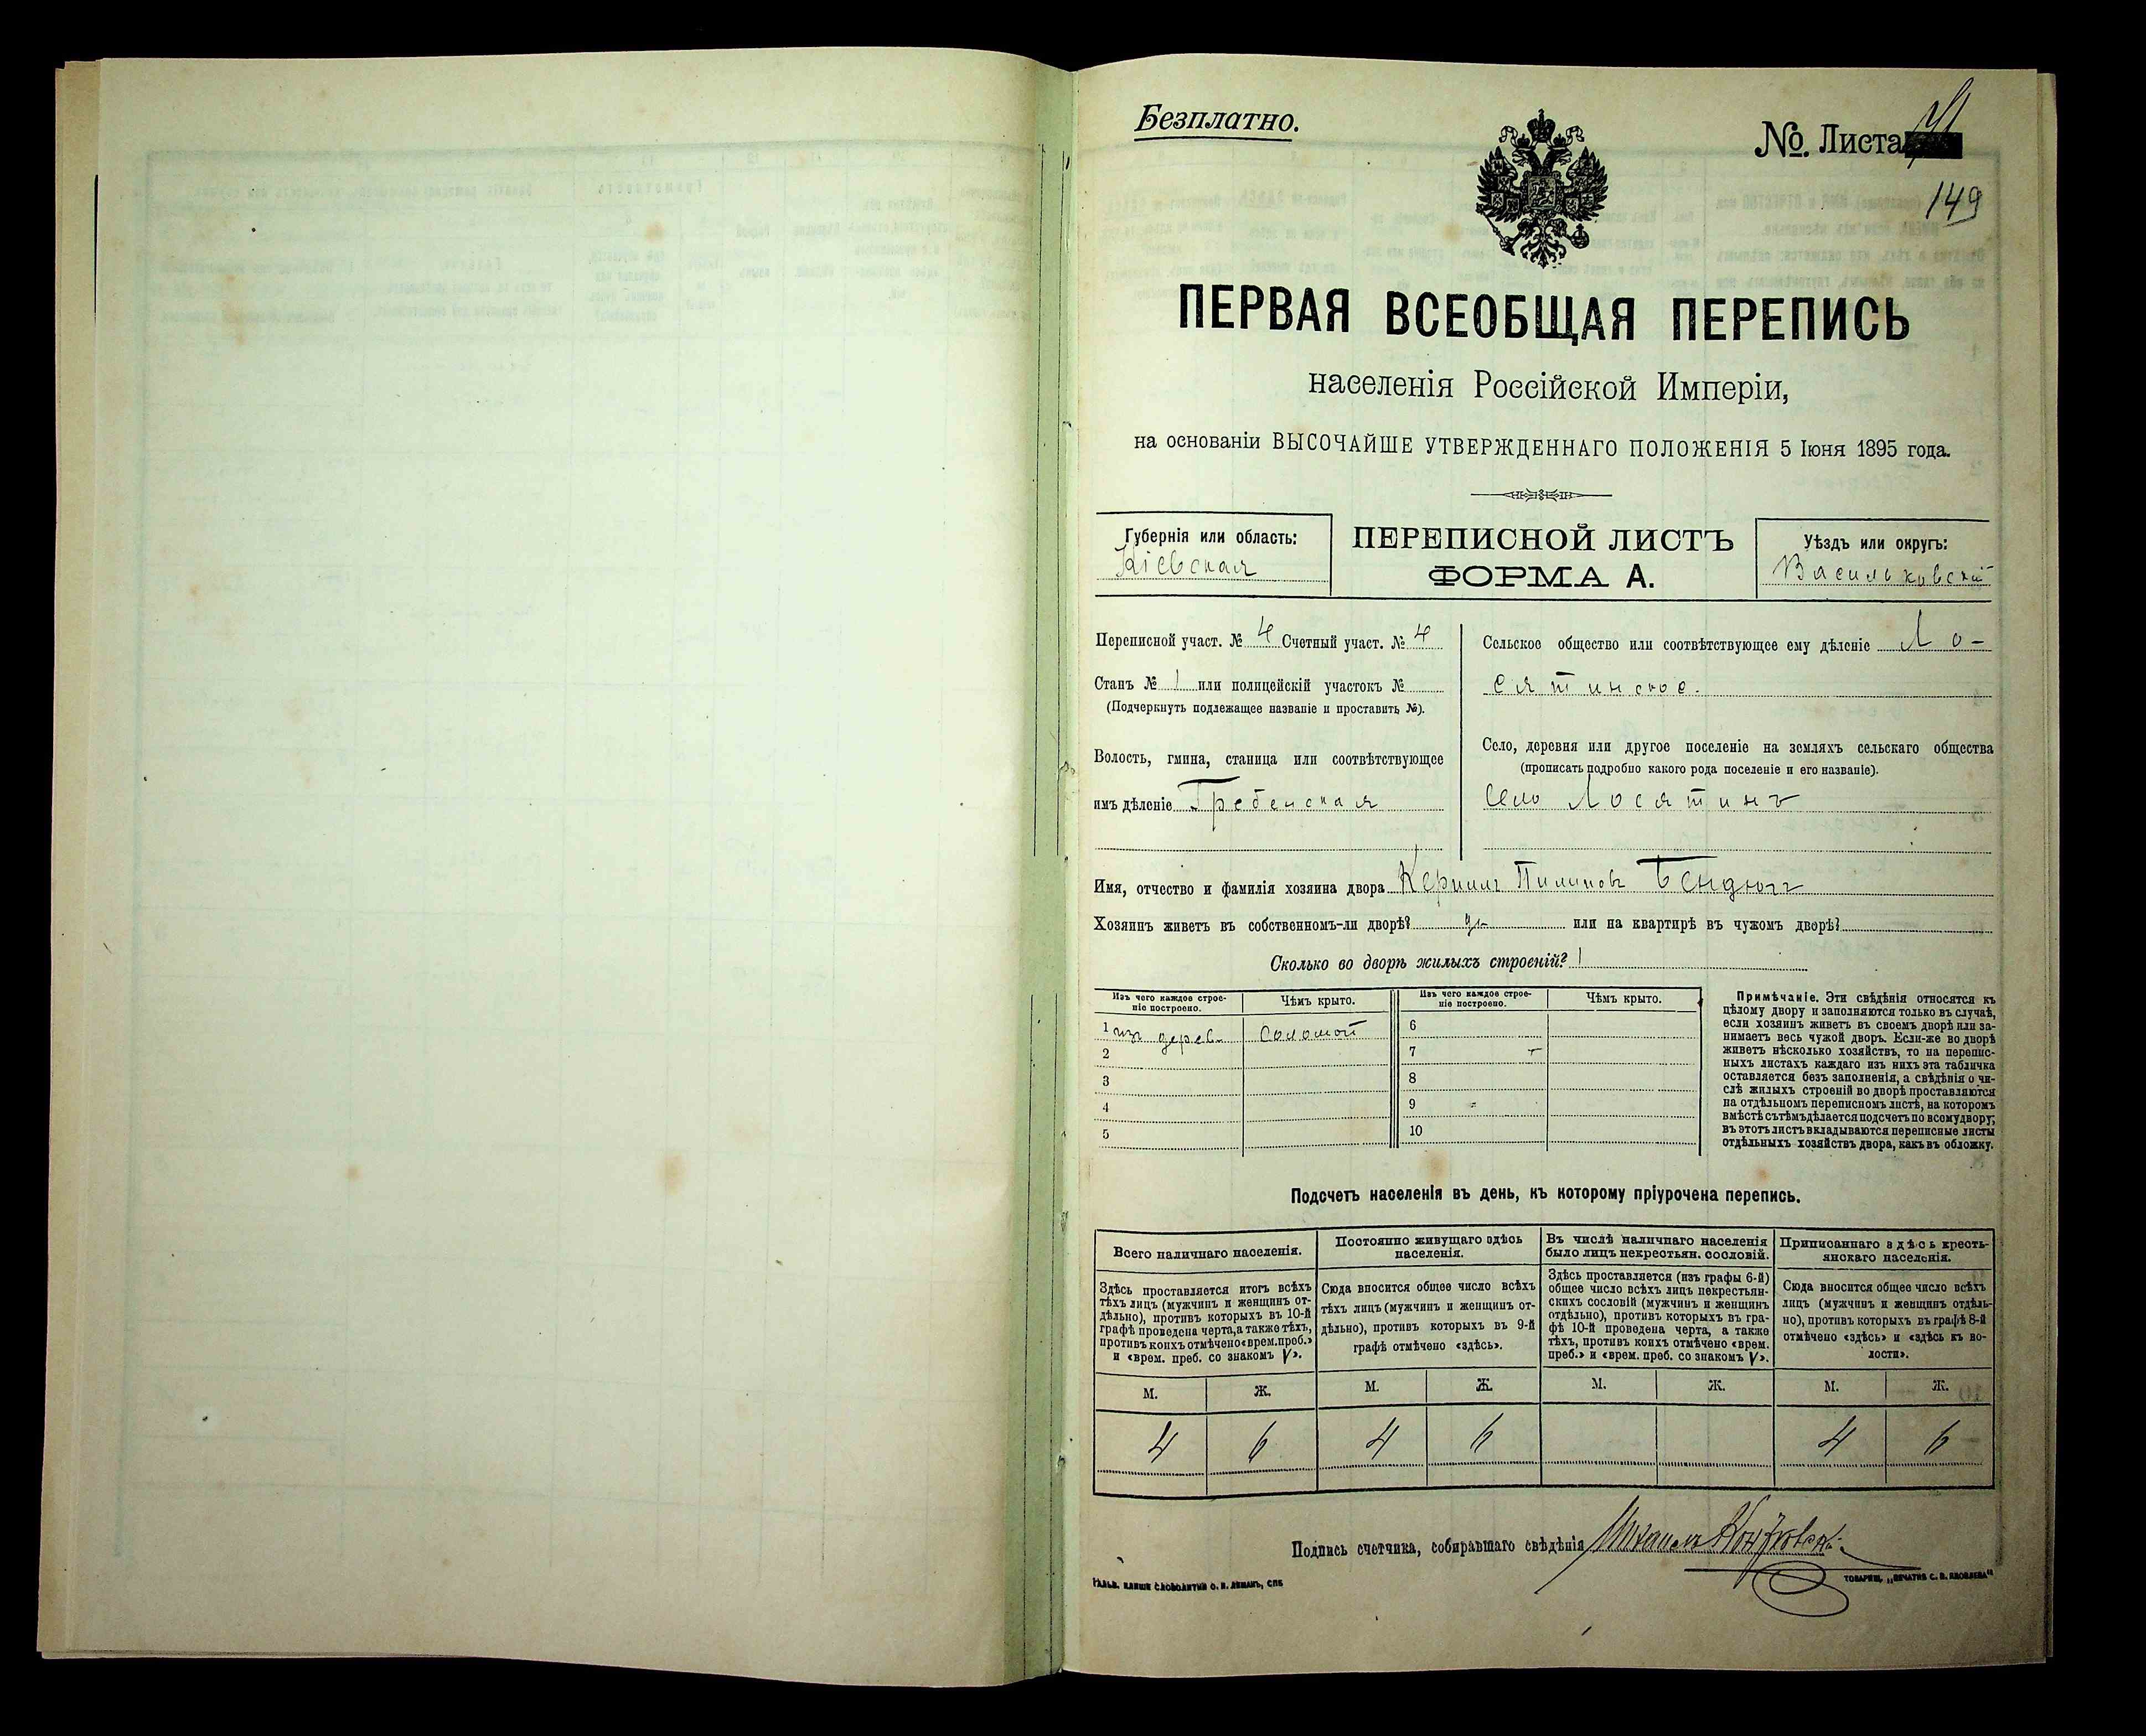 Безплатно.
№. Листа
149
ПЕРВАЯ ВСЕОБЩАЯ ПЕРЕПИСЬ
населенія Россійской Имперіи,
на основаніи ВЫСОЧАЙШЕ УТВЕРЖДЕННАГО ПОЛОЖЕНІЯ 5 Іюня 1895 года.
Губернія или область:
Кіевская
ПЕРЕПИСНОЙ ЛИСТЪ
ФОРМА А.
Уѣздъ или округъ:
Васильковскій
Переписной участ. № 4 Счетный участ. № 4
Станъ № 1 или полицейскій участокъ №
(Подчеркнуть подлежащее названіе и проставить №).
Волость, гмина, станица или соотвѣтствующее
имъ дѣленіе Гребенская
Сельское общество или соотвѣтствующее ему дѣленіе Ло-
сятинское.
Село, деревня или другое поселеніе на земляхъ сельскаго общества
(прописать подробно какого рода поселеніе и его названіе).
Село Лосятинъ
Имя, отчество и фамилія хозяина двора Кернилъ Пилиповъ Бендюгъ
Хозяинъ живетъ въ собственномъ-ли дворѣ? да или на квартирѣ въ чужомъ дворѣ?
Сколько во дворѣ жилыхъ строеній? 1
Изъ чего каждое строе-
ніе построено.
Чѣмъ крыто.
Изъ чего каждое строе-
ніе построено.
Чѣмъ крыто.
1 изъ дерев. Соломой
2
3
4
5
6
7
8
9
10
Примѣчаніе. Эти свѣдѣнія относятся къ
цѣлому двору и заполняются только въ случаѣ,
если хозяинъ живетъ въ своемъ дворѣ или за-
нимаетъ весь чужой дворъ. Если-же во дворѣ
живетъ нѣсколько хозяйствъ, то на перепис-
ныхъ листахъ каждаго изъ нихъ эта табличка
оставляется безъ заполненія, а свѣдѣнія о чи-
слѣ жилыхъ строеній во дворѣ проставляются
на отдѣльномъ переписномъ листѣ, на которомъ
вмѣстѣ съ тѣмъ дѣлается подсчетъ по всему двору;
въ этотъ листъ вкладываются переписные листы
отдѣльныхъ хозяйствъ двора, какъ въ обложку.
Подсчетъ населенія въ день, къ которому пріурочена перепись.
Всего наличнаго населенія.
Здѣсь проставляется итогъ всѣхъ
тѣхъ лицъ (мужчинъ и женщинъ от-
дѣльно), противъ которыхъ въ 10-й
графѣ проведена черта, а также тѣхъ,
противъ коихъ отмѣчено «врем. преб.»
и «врем. преб. со знакомъ V».
Постоянно живущаго здѣсь
населенія.
Сюда вносится общее число всѣхъ
тѣхъ лицъ (мужчинъ и женщинъ от-
дѣльно), противъ которыхъ въ 9-й
графѣ отмѣчено «здѣсь».
Въ числѣ наличнаго населенія
было лицъ некрестьян. сословій.
Здѣсь проставляется (изъ графы 6-й)
общее число всѣхъ лицъ некрестьян-
скихъ сословій (мужчинъ и женщинъ
отдѣльно), противъ которыхъ въ гра-
фѣ 10-й проведена черта, а также
тѣхъ, противъ коихъ отмѣчено «врем.
преб.» и «врем. преб. со знакомъ V».
Приписаннаго здѣсь кресть-
янскаго населенія.
Сюда вносится общее число всѣхъ
лицъ (мужчинъ и женщинъ отдѣль-
но), противъ которыхъ въ графѣ 8-й
отмѣчено «здѣсь» и «здѣсь къ во-
лости».
М. Ж. М. Ж. М. Ж. М. Ж.
4 6 4 6 4 6
Подпись счетчика, собиравшаго свѣдѣнія Михаилъ
ГАЛЬВ. КЛИШЕ СЛОВОЛИТНИ О. И. ЛЕМАНЪ, СПБ
ТОВАРИЩ. „ПЕЧАТНЯ С. П. ЯКОВЛЕВА“